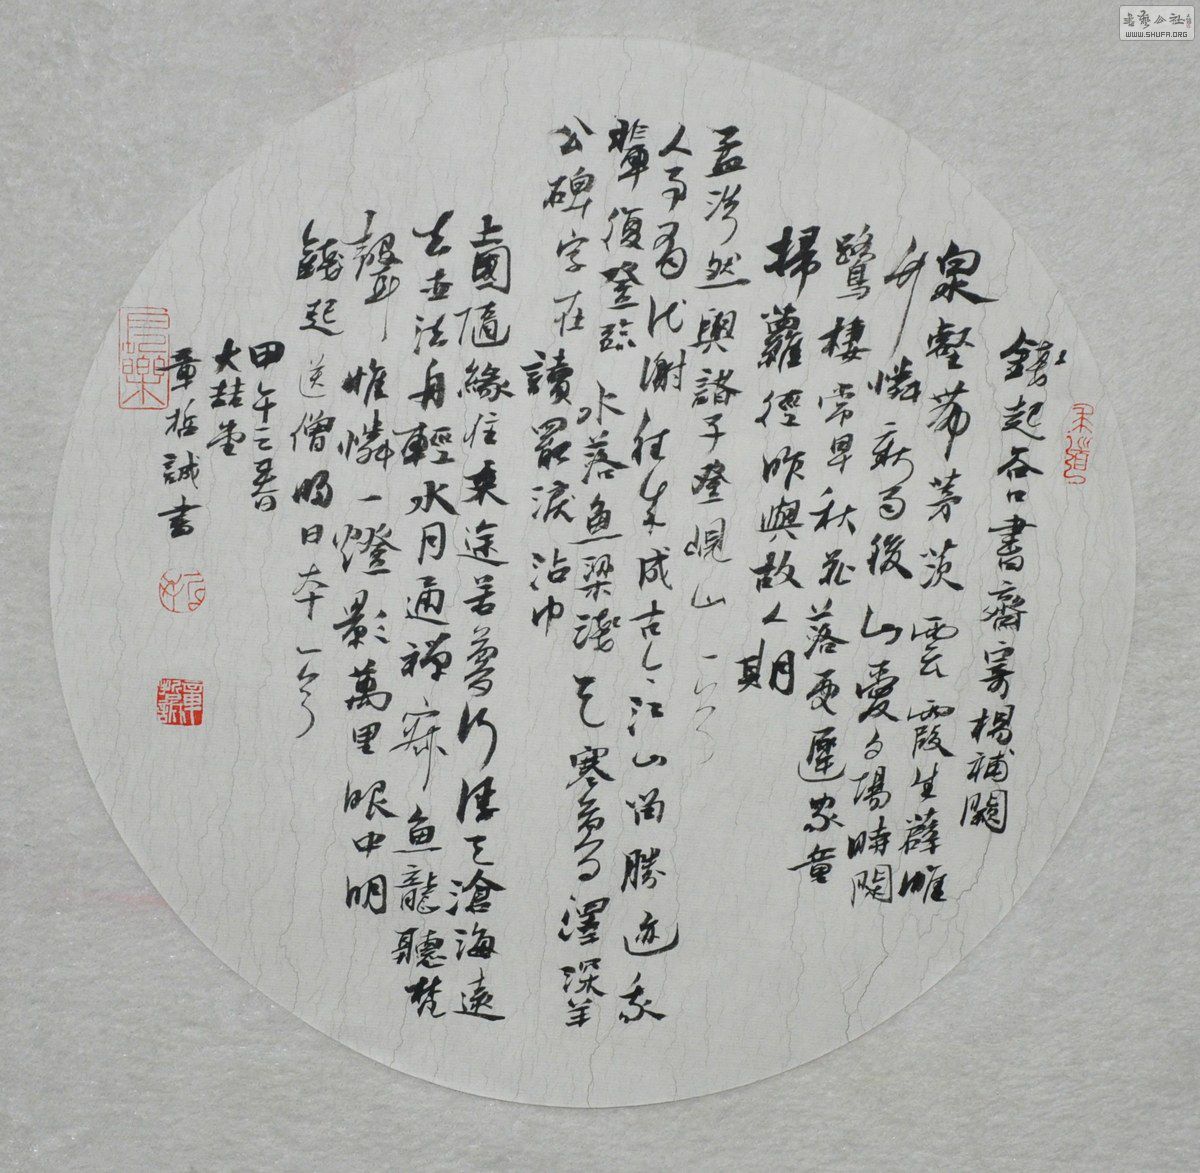 錢起谷口書齋寄楊補闕
泉壑帶茅茨雲霞生薜帷
竹憐新雨後山愛夕陽時閑
鷺棲常早秋花落更遲家童
掃蘿徑昨與故人期
孟浩然與諸子登峴山一首
人事有代謝往來成古今江山留勝迹我
輩復登臨水落魚梁淺天寒夢澤深羊
公碑字在讀罷淚沾巾
上國隨緣住來途若夢行浮天滄海遠
去世法舟輕水月通禪寂魚龍聽梵
聲惟憐一燈影萬里眼中明
錢起送僧歸日本一首
甲午之春
大喆堂
章哲誠書
WWW.SHUFA.ORG